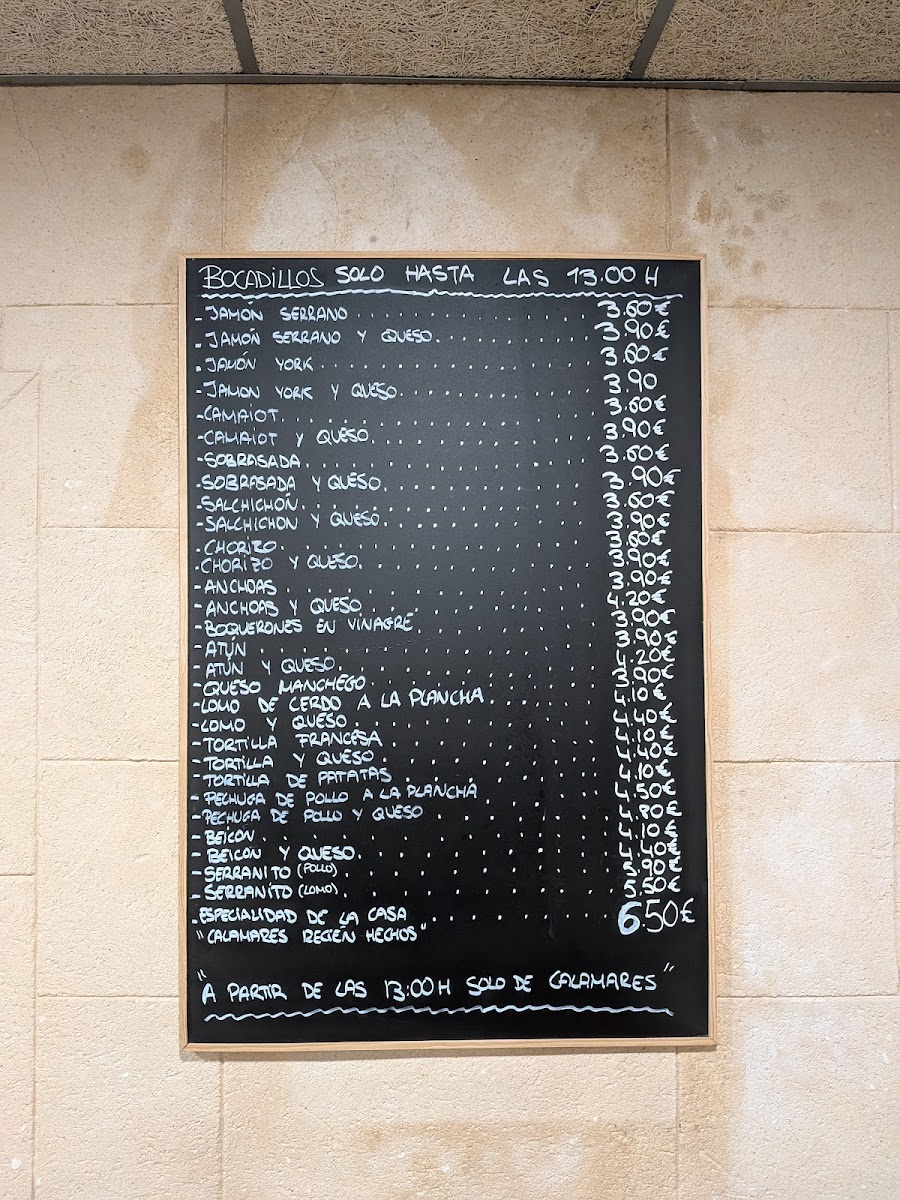 BOCADILLOS SOLO HASTA LAS 13.00 H
-JAMÓN SERRANO........... 3.60€
-JAMÓN SERRANO Y QUESO........... 3.90€
-JAMÓN YORK........... 3.60€
-JAMON YORK Y QUESO........... 3.90
-CAMAIOT........... 3.60€
-CAMAIOT Y QUESO........... 3.90€
-SOBRASADA........... 3.60€
-SOBRASADA Y QUESO........... 3.90€
-SALCHICHÓN........... 3.60€
-SALCHICHON Y QUESO........... 3.90€
-CHORIZO........... 3.60€
-CHORIZO Y QUESO........... 3.90€
-ANCHOAS........... 3.90€
-ANCHOAS Y QUESO........... 4.20€
-BOQUERONES EN VINAGRE........... 3.90€
-ATÚN........... 3.90€
-ATÚN Y QUESO........... 4.20€
-QUESO MANCHEGO........... 3.90€
-LOMO DE CERDO A LA PLANCHA........... 4.10€
-LOMO Y QUESO........... 4.40€
-TORTILLA FRANCESA........... 4.10€
-TORTILLA Y QUESO........... 4.40€
-TORTILLA DE PATATAS........... 4.10€
-PECHUGA DE POLLO A LA PLANCHA........... 4.50€
-PECHUGA DE POLLO Y QUESO........... 4.80€
-BEICON........... 4.10€
-BEICON Y QUESO........... 4.40€
-SERRANITO (POLLO)........... 5.90€
-SERRANITO (LOMO)........... 5.50€
-ESPECIALIDAD DE LA CASA........... 6.50€
"CALAMARES RECIÉN HECHOS"
"A PARTIR DE LAS 13:00H SOLO DE CALAMARES"